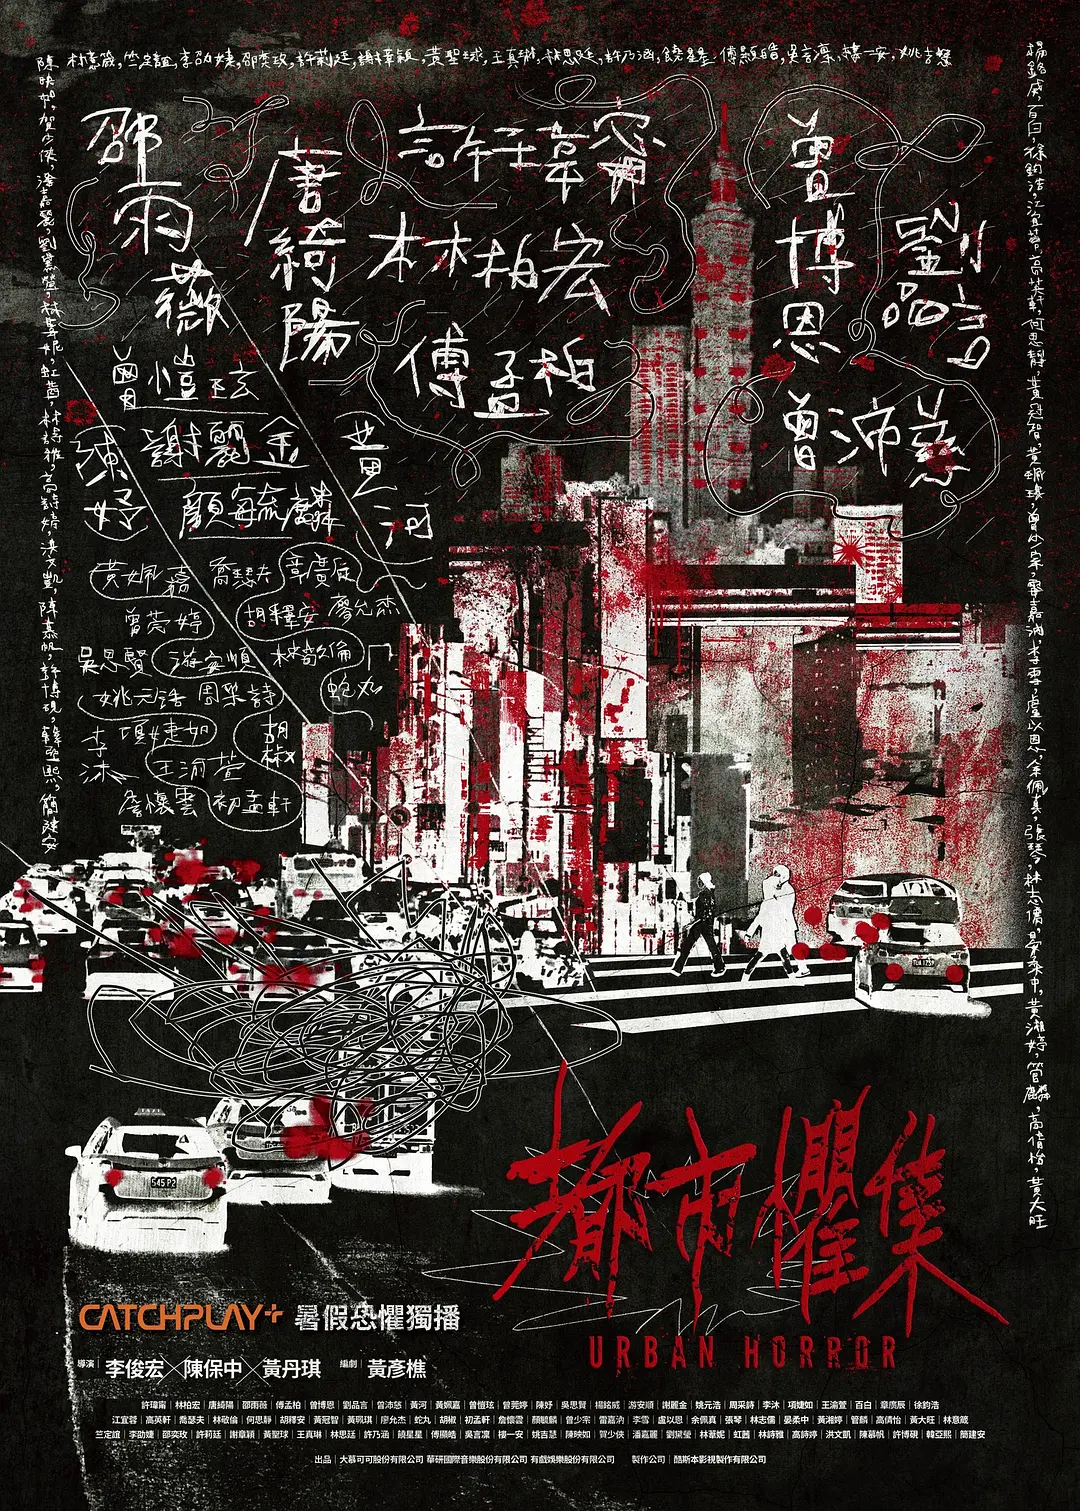 林意箴,竺定誼,李劭婕,邵奕玫,許莉廷,謝章穎,黃聖球,王真琳,林思廷,許乃涵,饒星星,傅顯皓,吳言凜,樓一安,姚吉慧
陳映如,賀少俠,潘嘉麗,劉黛瑩,林葦妮,虹茜,林詩雅,高詩婷,洪文凱,陳慕帆,許博硯,韓亞熙,簡建安
楊銘威,百白,徐鈞浩,江宜蓉,高英軒,何思靜,黃冠智,黃珮琪,曾少宗,雷嘉汭,李雪,盧以恩,余佩真,張琴,林志儒,晏柔中,黃湘婷,管麟,高倩怡,黃大旺
邵雨薇
唐綺陽
許瑋甯
林柏宏
傅孟柏
曾博恩
劉品言
曾沛慈
曾愷玹
陳妤
謝麗金
顏毓麟
黃河
黃姵嘉
喬瑟夫
章廣辰
曾莞婷
胡釋安
廖允杰
吳思賢
游安順
林敬倫
姚元浩
周采詩
蛇丸
李沐
項婕如
胡椒
王渝萱
詹懷雲
初孟軒
TDK 1759
545 P2
都市懼集
URBAN HORROR
CATCHPLAY+ 暑假恐懼獨播
導演 李俊宏×陳保中×黃丹琪 編劇 黃彥樵
許瑋甯|林柏宏|唐綺陽|邵雨薇|傅孟柏|曾博恩|劉品言|曾沛慈|黃河|黃姵嘉|曾愷玹|曾莞婷|陳妤|吳思賢|楊銘威|游安順|謝麗金|姚元浩|周采詩|李沐|項婕如|王渝萱|百白|章廣辰|徐鈞浩
江宜蓉|高英軒|喬瑟夫|林敬倫|何思靜|胡釋安|黃冠智|黃珮琪|廖允杰|蛇丸|胡椒|初孟軒|詹懷雲|顏毓麟|曾少宗|雷嘉汭|李雪|盧以恩|余佩真|張琴|林志儒|晏柔中|黃湘婷|管麟|高倩怡|黃大旺|林意箴
竺定誼|李劭婕|邵奕玫|許莉廷|謝章穎|黃聖球|王真琳|林思廷|許乃涵|饒星星|傅顯皓|吳言凜|樓一安|姚吉慧|陳映如|賀少俠|潘嘉麗|劉黛瑩|林葦妮|虹茜|林詩雅|高詩婷|洪文凱|陳慕帆|許博硯|韓亞熙|簡建安
出品|大慕可可股份有限公司 華研國際音樂股份有限公司 有戲娛樂股份有限公司 製作公司|酷斯本影視製作有限公司